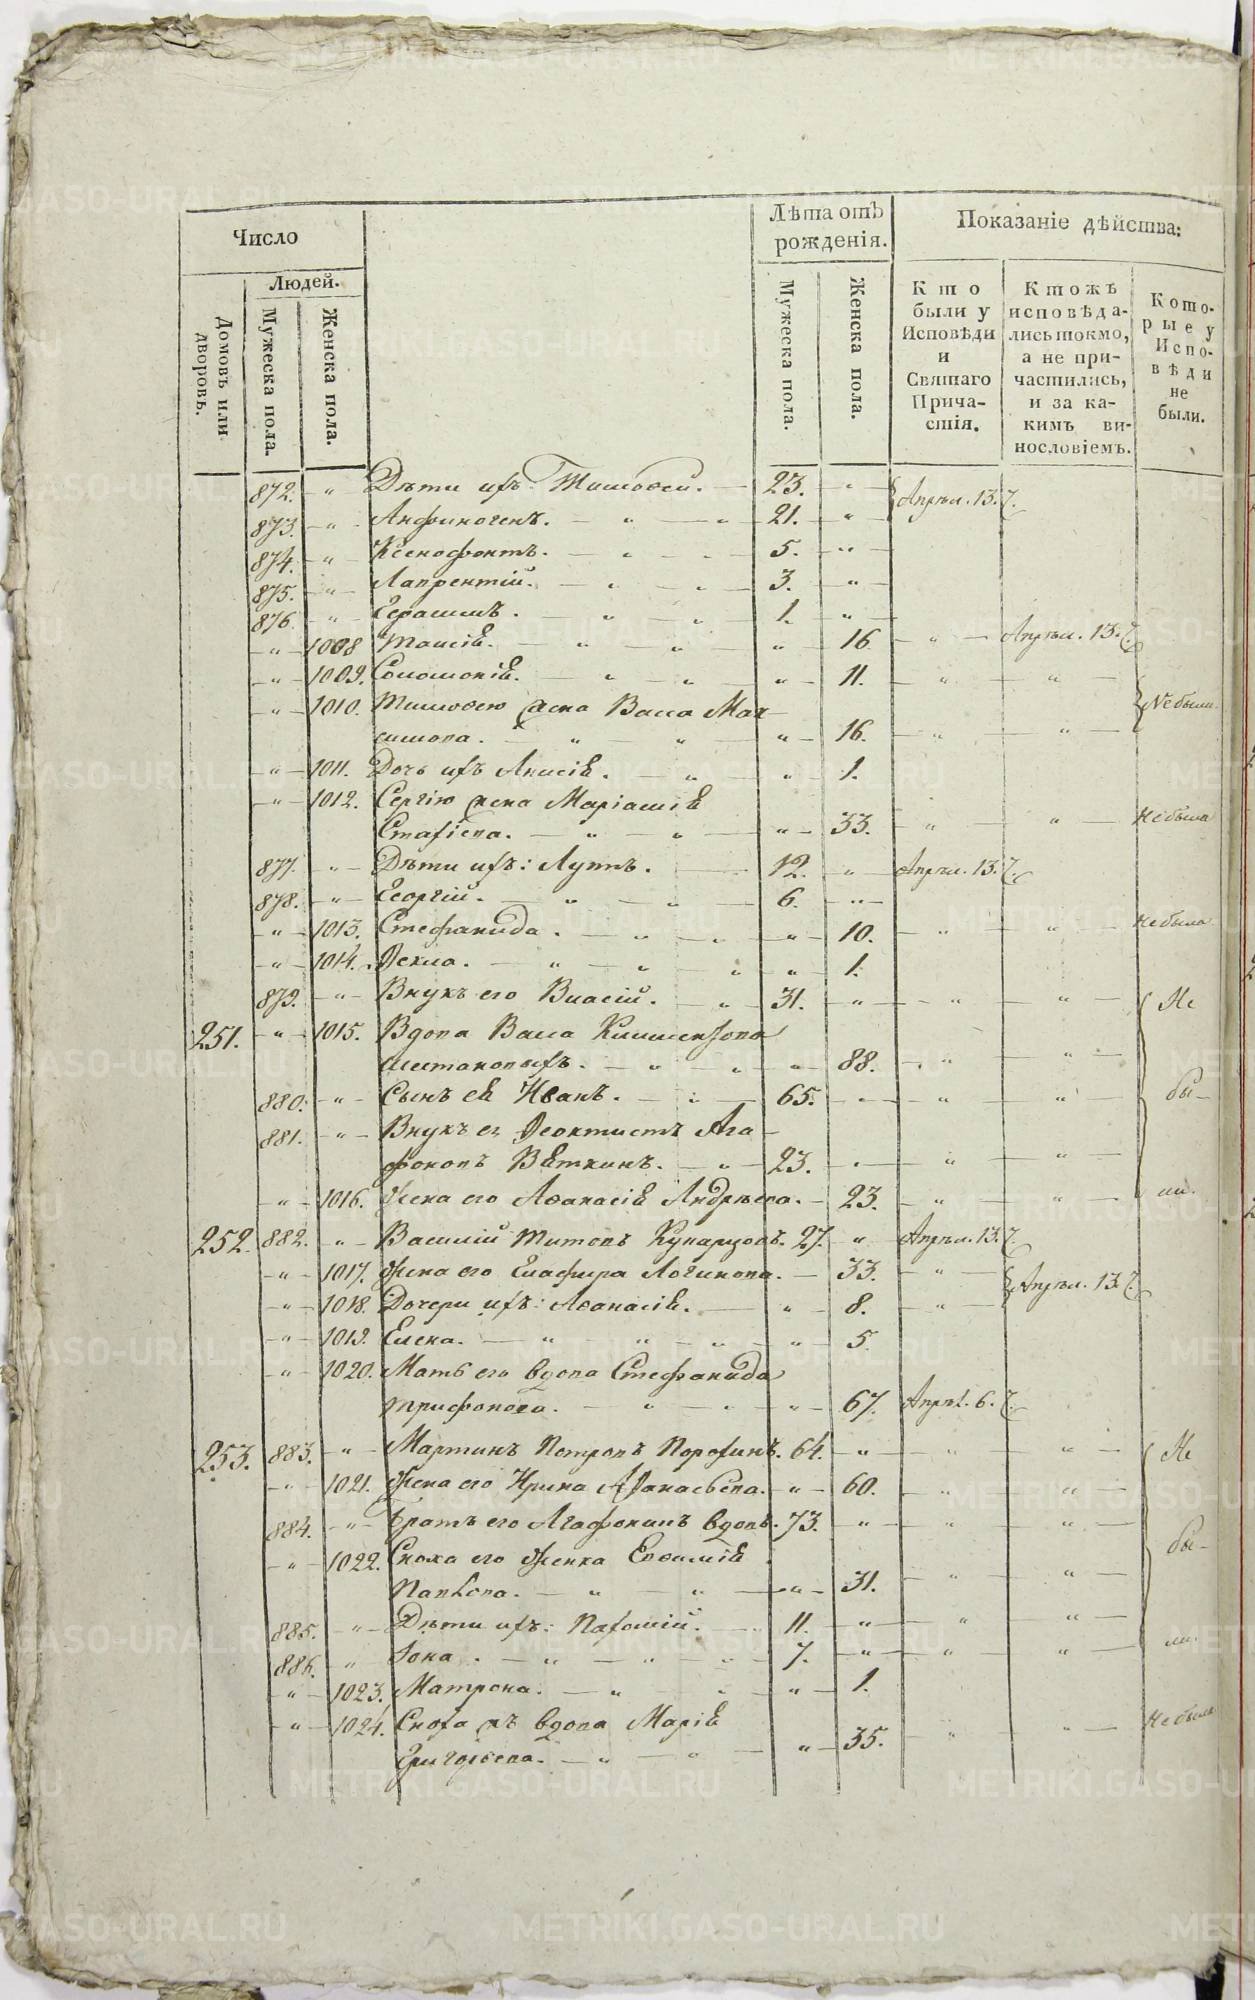 Число
Людей.
Домовъ или дворовъ.
Мужеска пола.
Женска пола.
Лѣта отъ рожденія.
Мужеска пола.
Женска пола.
Показаніе дѣйства:
Кто были у Исповѣди и Святаго Причастія.
Ктожѣ исповѣдались токмо, а не причастились, и за какимъ винословіемъ.
Которые у Исповѣди не были.
872. " Дѣти ихъ: Тимоѳей. 23. " Апрѣл. 13.
873. " Анфиногенъ. " " 21. "
874. " Ксенофонтъ. " " 5. "
875. " Лаврентій. " " 3. "
876. " Герасимъ. " " 1. "
" 1008 Таисія. " " " 16. " Апрѣл. 13.
" 1009. Соломонія. " " " 11. " "
" 1010. Тимоѳею жена Васса Мак-
симова. " " " 16. " " Не были
" 1011. Дочь ихъ Анисія. " " 1.
" 1012. Сергію жена Маріамія
" " " 33. " " Не была
877. " Дѣти ихъ: Луппъ. 12. " Апрѣл. 13.
878. " Георгій. " " 6. "
" 1013. Стефанида. " " " 10. " " Не была
" 1014. Ѳекла. " " " " 1.
879. " Внукъ его Власій. " 31. " " " Не
251. " 1015. Вдова Васса
" " " 88. " "
880. " Сынъ ея Иванъ. " 65. " " " бы-
881. " Внукъ ея Ѳеоктистъ Ага-
фоновъ Вяткинъ. " 23. " " "
" 1016. Жена его Аѳанасія Андрѣева. 23. " " ли.
252. 882. " Василій Титовъ 27. " Апрѣл. 13.
" 1017. Жена его Глафира Логинова. 33. " Апрѣл. 13.
" 1018. Дочери ихъ: Аѳанасія. " 8. "
" 1019. Елена. " " " " 5.
" 1020. Мать его вдова Стефанида
Трифонова. " " " 67. Апрѣл. 6.
253. 883. " Мартинъ Петровъ 64. " " " Не
" 1021. Жена его Ирина Аѳанасьева. " 60. " "
884. " Братъ его Агафонъ вдовъ. 73. " " " бы-
" 1022. Сноха его Женка Евѳимія
Павлова. " " " 31. " "
885. " Дѣти ихъ: Пахомій. 11. " " "
886. " Іона. " " " 7. " " " ли.
" 1023. Матрона. " " " 1.
" 1024. Сноха жъ вдова Марія
Григорьева. " " " 35. " " Не была
METRIKI.GASO-URAL.RU